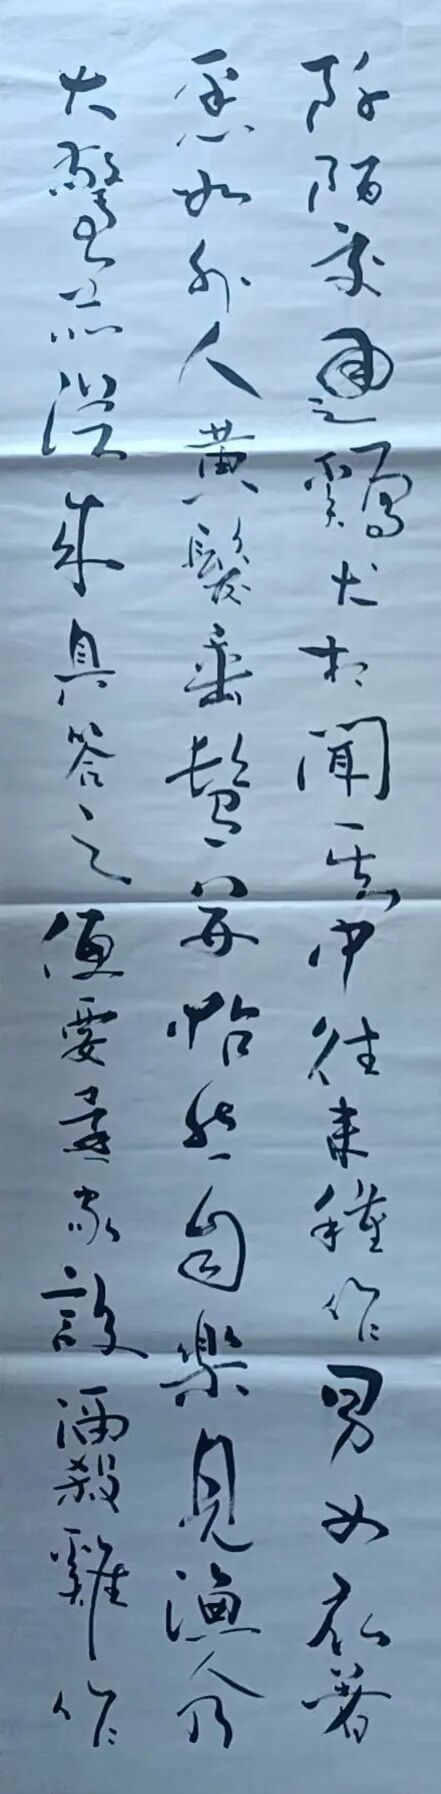 阡陌交通鷄犬相聞其中往來種作男女衣著
悉如外人黃髮垂髫並怡然自樂見漁人乃
大驚問所從來具答之便要還家設酒殺雞作